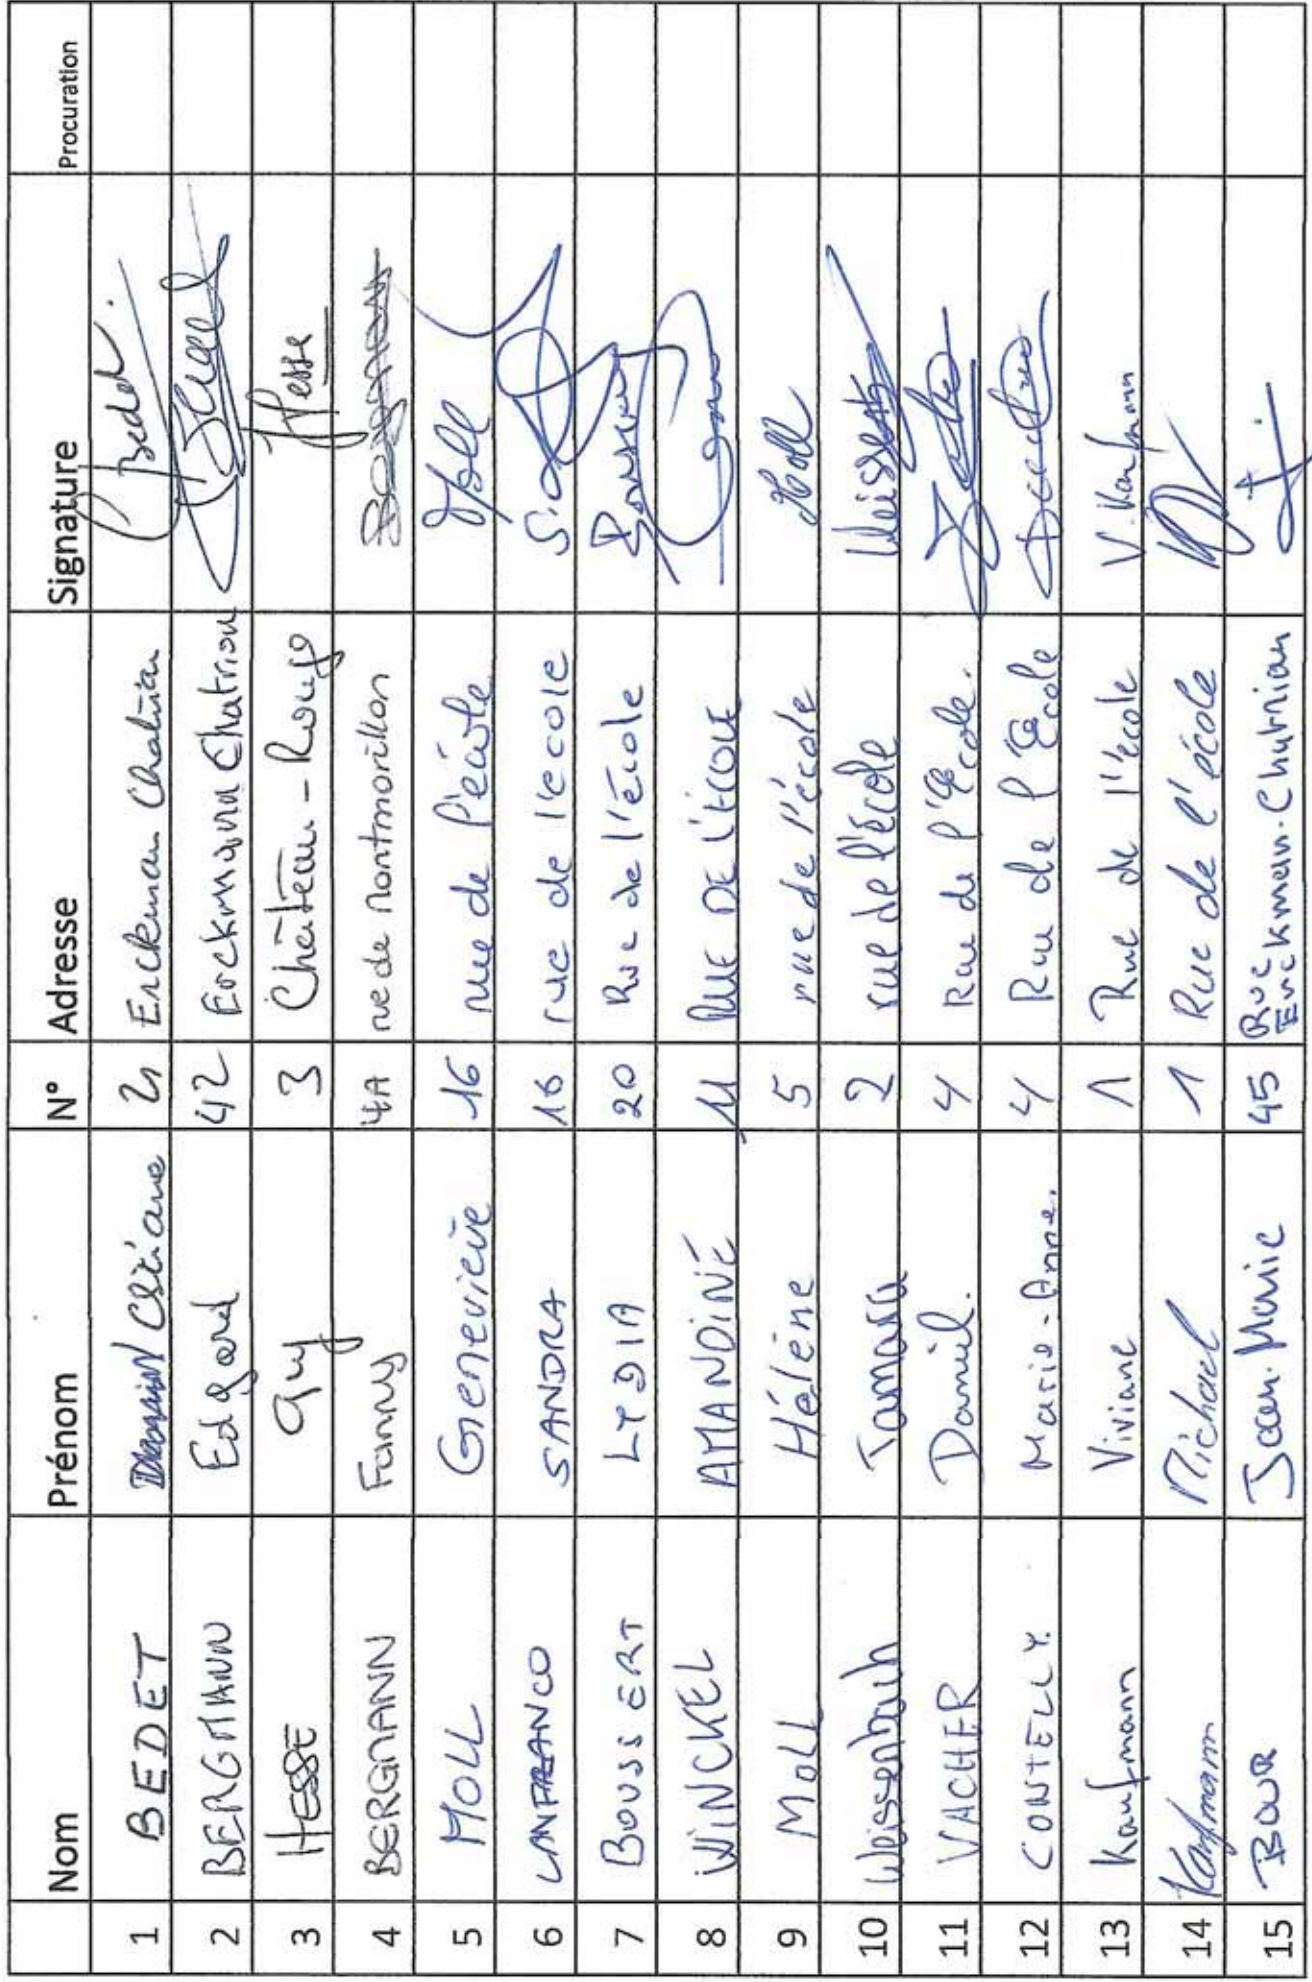 Nom Prénom N° Adresse Signature Procuration
1 BEDET Christiane 21 Erckman Chatrian Bedet
2 BERGMANN Edgard 42 Erckmann Chatrian
3 HESSE Guy 3 Château-Rouge Hesse
4 BERGMANN Fanny 4A rue de Montmorillon
5 MOLL Geneviève 16 rue de l'école Moll
6 LANFRANCO SANDRA 16 rue de l'ecole
7 BOUSSERT LYDIA 20 Rue de l'école
8 WINCKEL AMANDINE 11 RUE DE L'ECOLE
9 MOLL Hélène 5 rue de l'école Moll
10 Weissenbach Tamara 2 rue de l'école
11 VACHER Daniel. 4 Rue de l'Ecole.
12 CONTELLY. Marie-Anne. 4 Rue de l'Ecole
13 Kaufmann Viviane 1 Rue de l'école V. Kaufmann
14 Kaufmann Michael 1 Rue de l'école
15 BOUR Jean-Marie 45 Rue
Erckmann-Chatrian